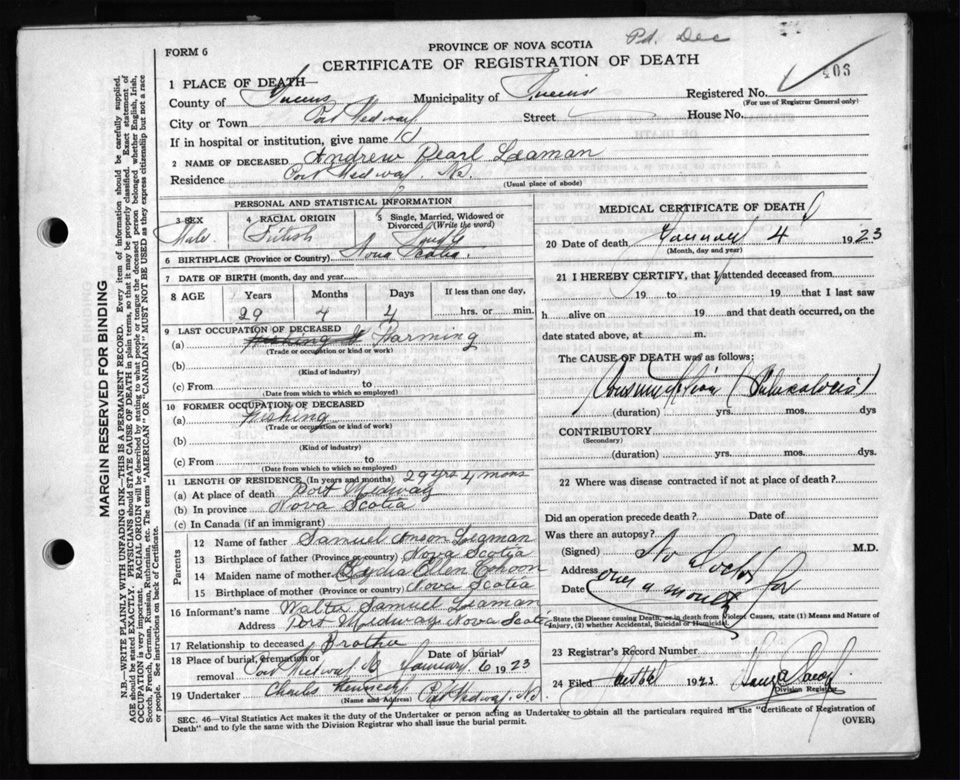 Pd. Dec
FORM 6
PROVINCE OF NOVA SCOTIA
CERTIFICATE OF REGISTRATION OF DEATH
403
1 PLACE OF DEATH—
County of Queens Municipality of Queens Registered No.
(For use of Registrar General only)
City or Town Port Medway Street House No.
If in hospital or institution, give name
2 NAME OF DECEASED Andrew Pearl Leaman
Residence Port Medway. N.S.
(Usual place of abode)
PERSONAL AND STATISTICAL INFORMATION
3 SEX Male
4 RACIAL ORIGIN British
5 Single, Married, Widowed or Divorced (Write the word) Single
6 BIRTHPLACE (Province or Country) Nova Scotia.
7 DATE OF BIRTH (month, day and year)
8 AGE Years Months Days If less than one day,
29 4 4 hrs. or min.
9 LAST OCCUPATION OF DECEASED
(a) Farming
(Trade or occupation or kind of work)
(b)
(Kind of industry)
(c) From to
(Date from which to which so employed)
10 FORMER OCCUPATION OF DECEASED
(a) Fishing
(Trade or occupation or kind of work)
(b)
(Kind of industry)
(c) From to
(Date from which to which so employed)
11 LENGTH OF RESIDENCE (In years and months) 29 yrs 4 mons
(a) At place of death Port Midway
(b) In province Nova Scotia
(c) In Canada (if an immigrant)
Parents
12 Name of father Samuel Anson Leaman
13 Birthplace of father (Province or country) Nova Scotia
14 Maiden name of mother Lydia Ellen Cohoon
15 Birthplace of mother (Province or country) Nova Scotia
16 Informant's name Walter Samuel Leaman
Address Port Midway Nova Scotia
17 Relationship to deceased Brother
18 Place of burial, cremation or removal Port Medway N.S. Date of burial January 6 1923
19 Undertaker Charles Kennedy Port Medway. N.S.
(Name and Address)
MEDICAL CERTIFICATE OF DEATH
20 Date of death January 4 1923
(Month, day and year)
21 I HEREBY CERTIFY, that I attended deceased from
19 to 19 that I last saw
h alive on 19 and that death occurred, on
date stated above, at m.
The CAUSE OF DEATH was as follows:
Consumption (Tuberculosis)
(duration) yrs. mos. dys
CONTRIBUTORY
(Secondary)
(duration) yrs. mos. dys.
22 Where was disease contracted if not at place of death?
Did an operation precede death? Date of
Was there an autopsy?
(Signed) No Doctor M.D.
Address for
Date over a month
State the Disease causing Death, or in death from Violent Causes, state (1) Means and Nature of
Injury, (2) whether Accidental, Suicidal or Homicidal.
23 Registrar's Record Number
24 Filed 1923
Division Registrar
SEC. 46—Vital Statistics Act makes it the duty of the Undertaker or person acting as Undertaker to obtain all the particulars required in the "Certificate of Registration of
Death" and to fyle the same with the Division Registrar who shall issue the burial permit. (OVER)
MARGIN RESERVED FOR BINDING
N.B.—WRITE PLAINLY WITH UNFADING INK—THIS IS A PERMANENT RECORD. Every item of information should be carefully supplied.
AGE should be stated EXACTLY. PHYSICIANS should STATE CAUSE OF DEATH in plain terms, so that it may be properly classified. Exact statement of
OCCUPATION is very important. RACIAL ORIGIN will be described by stating to what people or tongue the deceased person belonged whether English, Irish,
Scotch, French, German, Russian, Ruthenian, etc. The terms "AMERICAN" OR "CANADIAN" MUST NOT BE USED as they express citizenship but not a race
or people. See instructions on back of Certificate.